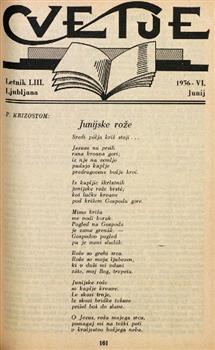 CVETJE
Letnik LIII.
1936 - VI.
Ljubljana
Junij
P. KRIZOSTOM:
Junijske rože
Sredi polja križ stoji ...
Jezusu na prsih
rana krvava gori;
iz nje na zemljo
padajo kaplje
predragocene božje krvi.
Iz kapljic škrlatnih
junijske rože brstè;
kot lučke krvave
pod križem Gospoda gore.
Mimo križa
me vodi korak.
Pogled na Gospoda
je zame grenák. —
Gospodov pogled
pa je meni sladák.
Rože so grehi srca.
Rože so moja ljubezen,
ki v duši mi vdani
zate, moj Bog, trepeta.
Junijske rože
so kaplje krvave.
Le skozi trnje,
le skozi bridke težave
prideš tud do slave.
O Jezus, roža mojega srca,
pomagaj mi na težki poti
v kraljestvo božjega neba.
161